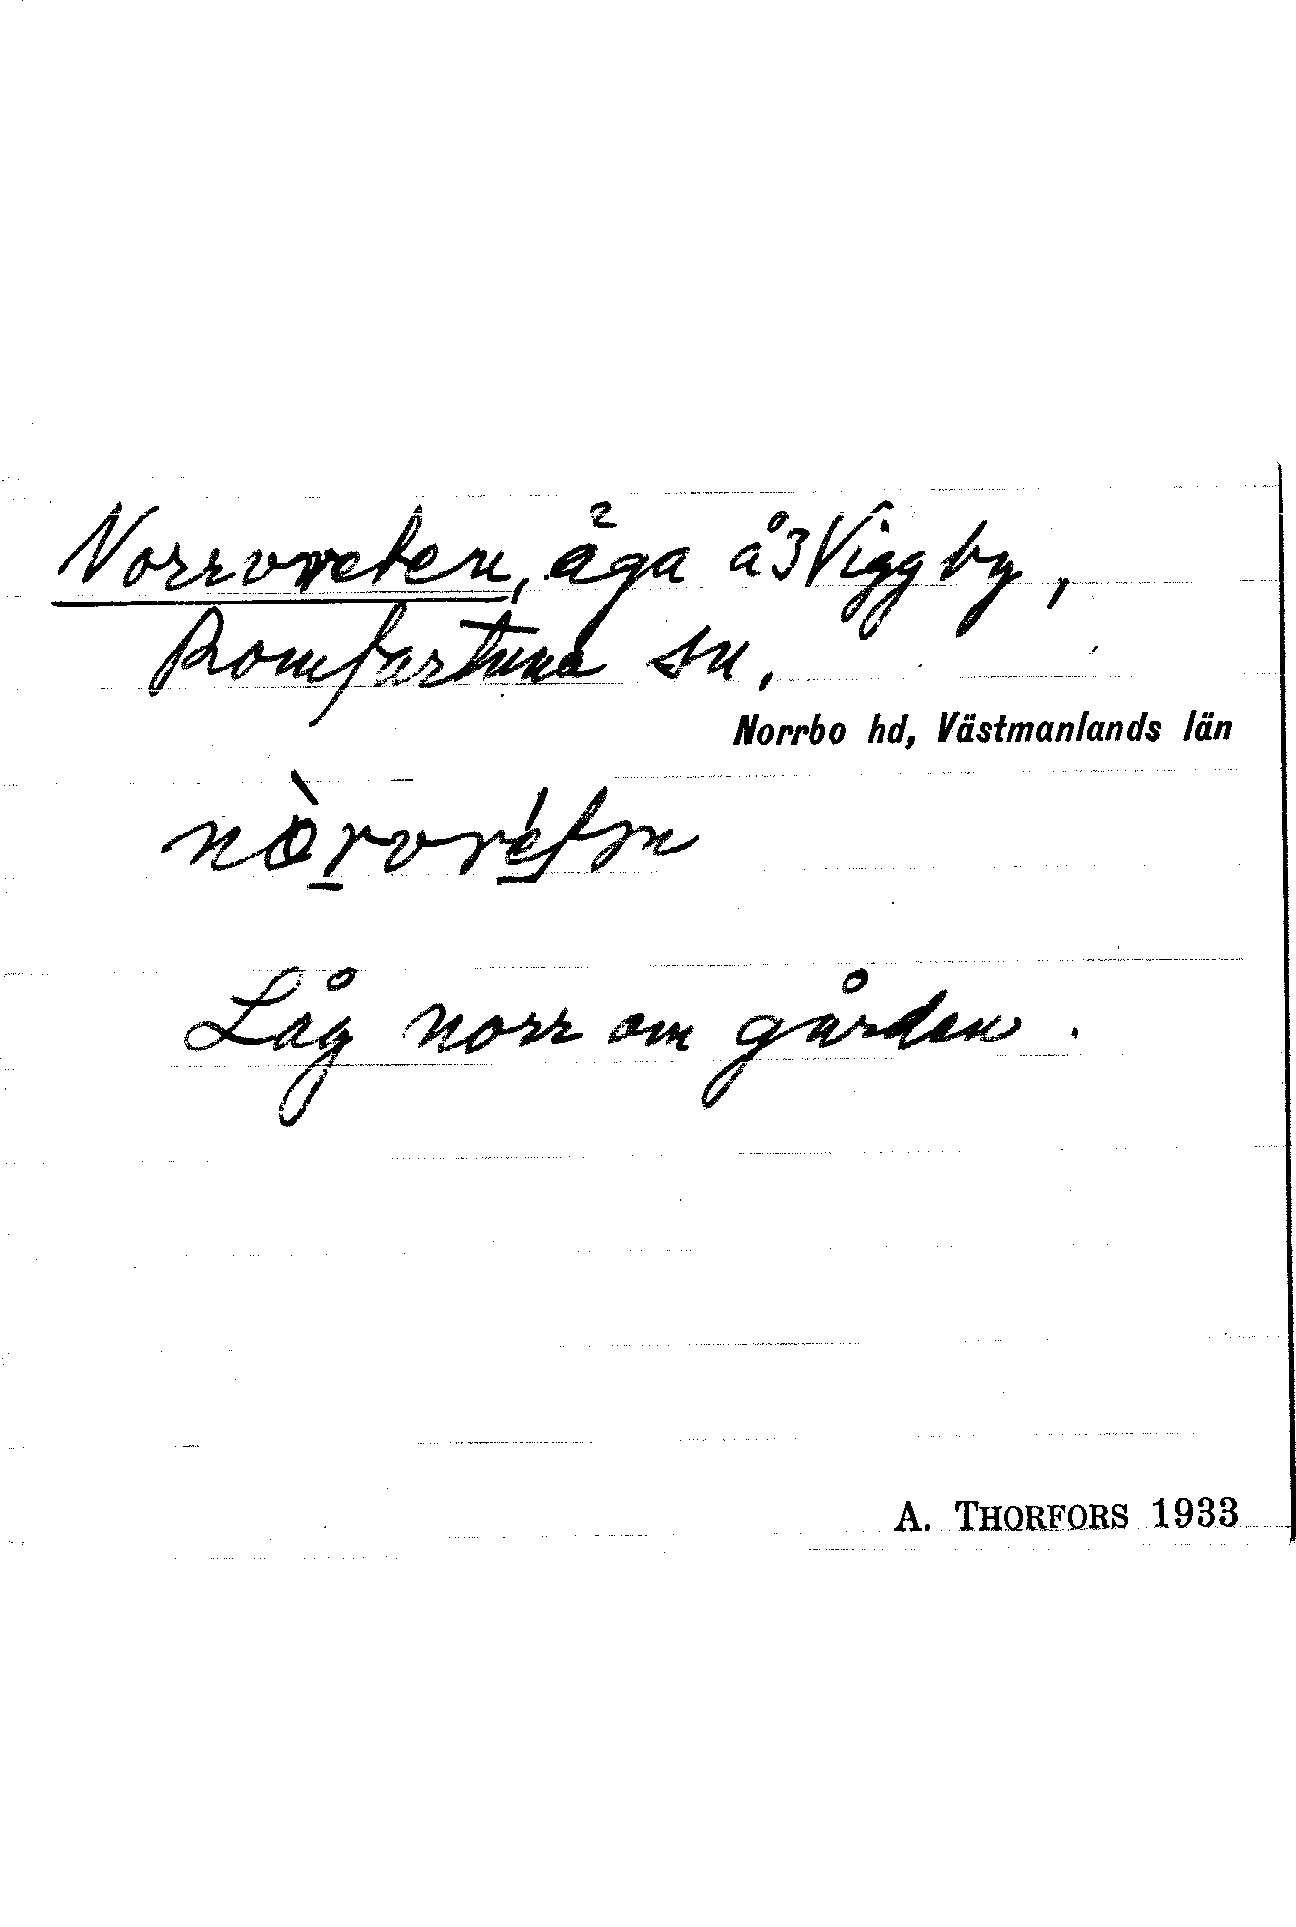 Norrvreten, äga å 3 Viggby,
Romfartuna sn,
Norrbo hd, Västmanlands län
nòrvrétn
Låg norr om gården.
A. THORFORS 1933